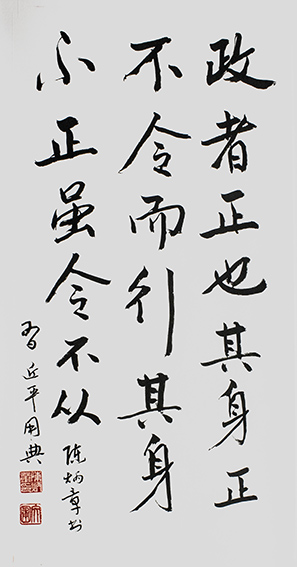 政者正也其身正
不令而行其身
不正虽令不从
陈炳章书
习近平用典